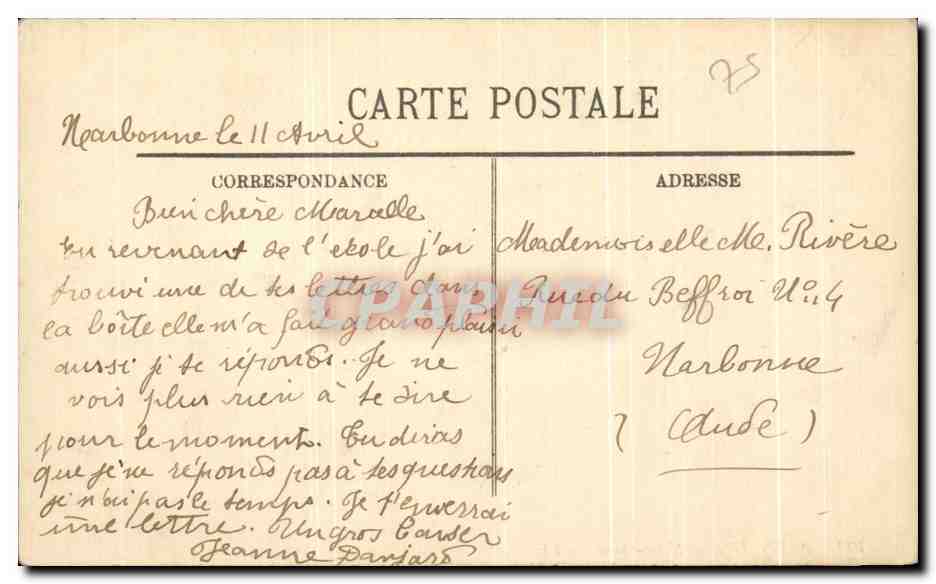 75
CARTE POSTALE
Narbonne le 11 Avril
CORRESPONDANCE
Bien chère Marcelle
En revenant de l'école j'ai
trouvé une de tes lettres dans
la boîte elle m'a fait grand plaisir
aussi je te réponds. Je ne
vois plus rien à te dire
pour le moment. Tu diras
que je ne réponds pas à tes questions
je n'ai pas le temps. Je t'enverrai
une lettre. Un gros baiser
Jeanne Danjard
ADRESSE
Mademoiselle M. Rivère
Rue du Beffroi No 4
Narbonne
(Aude)
CPAPHIL